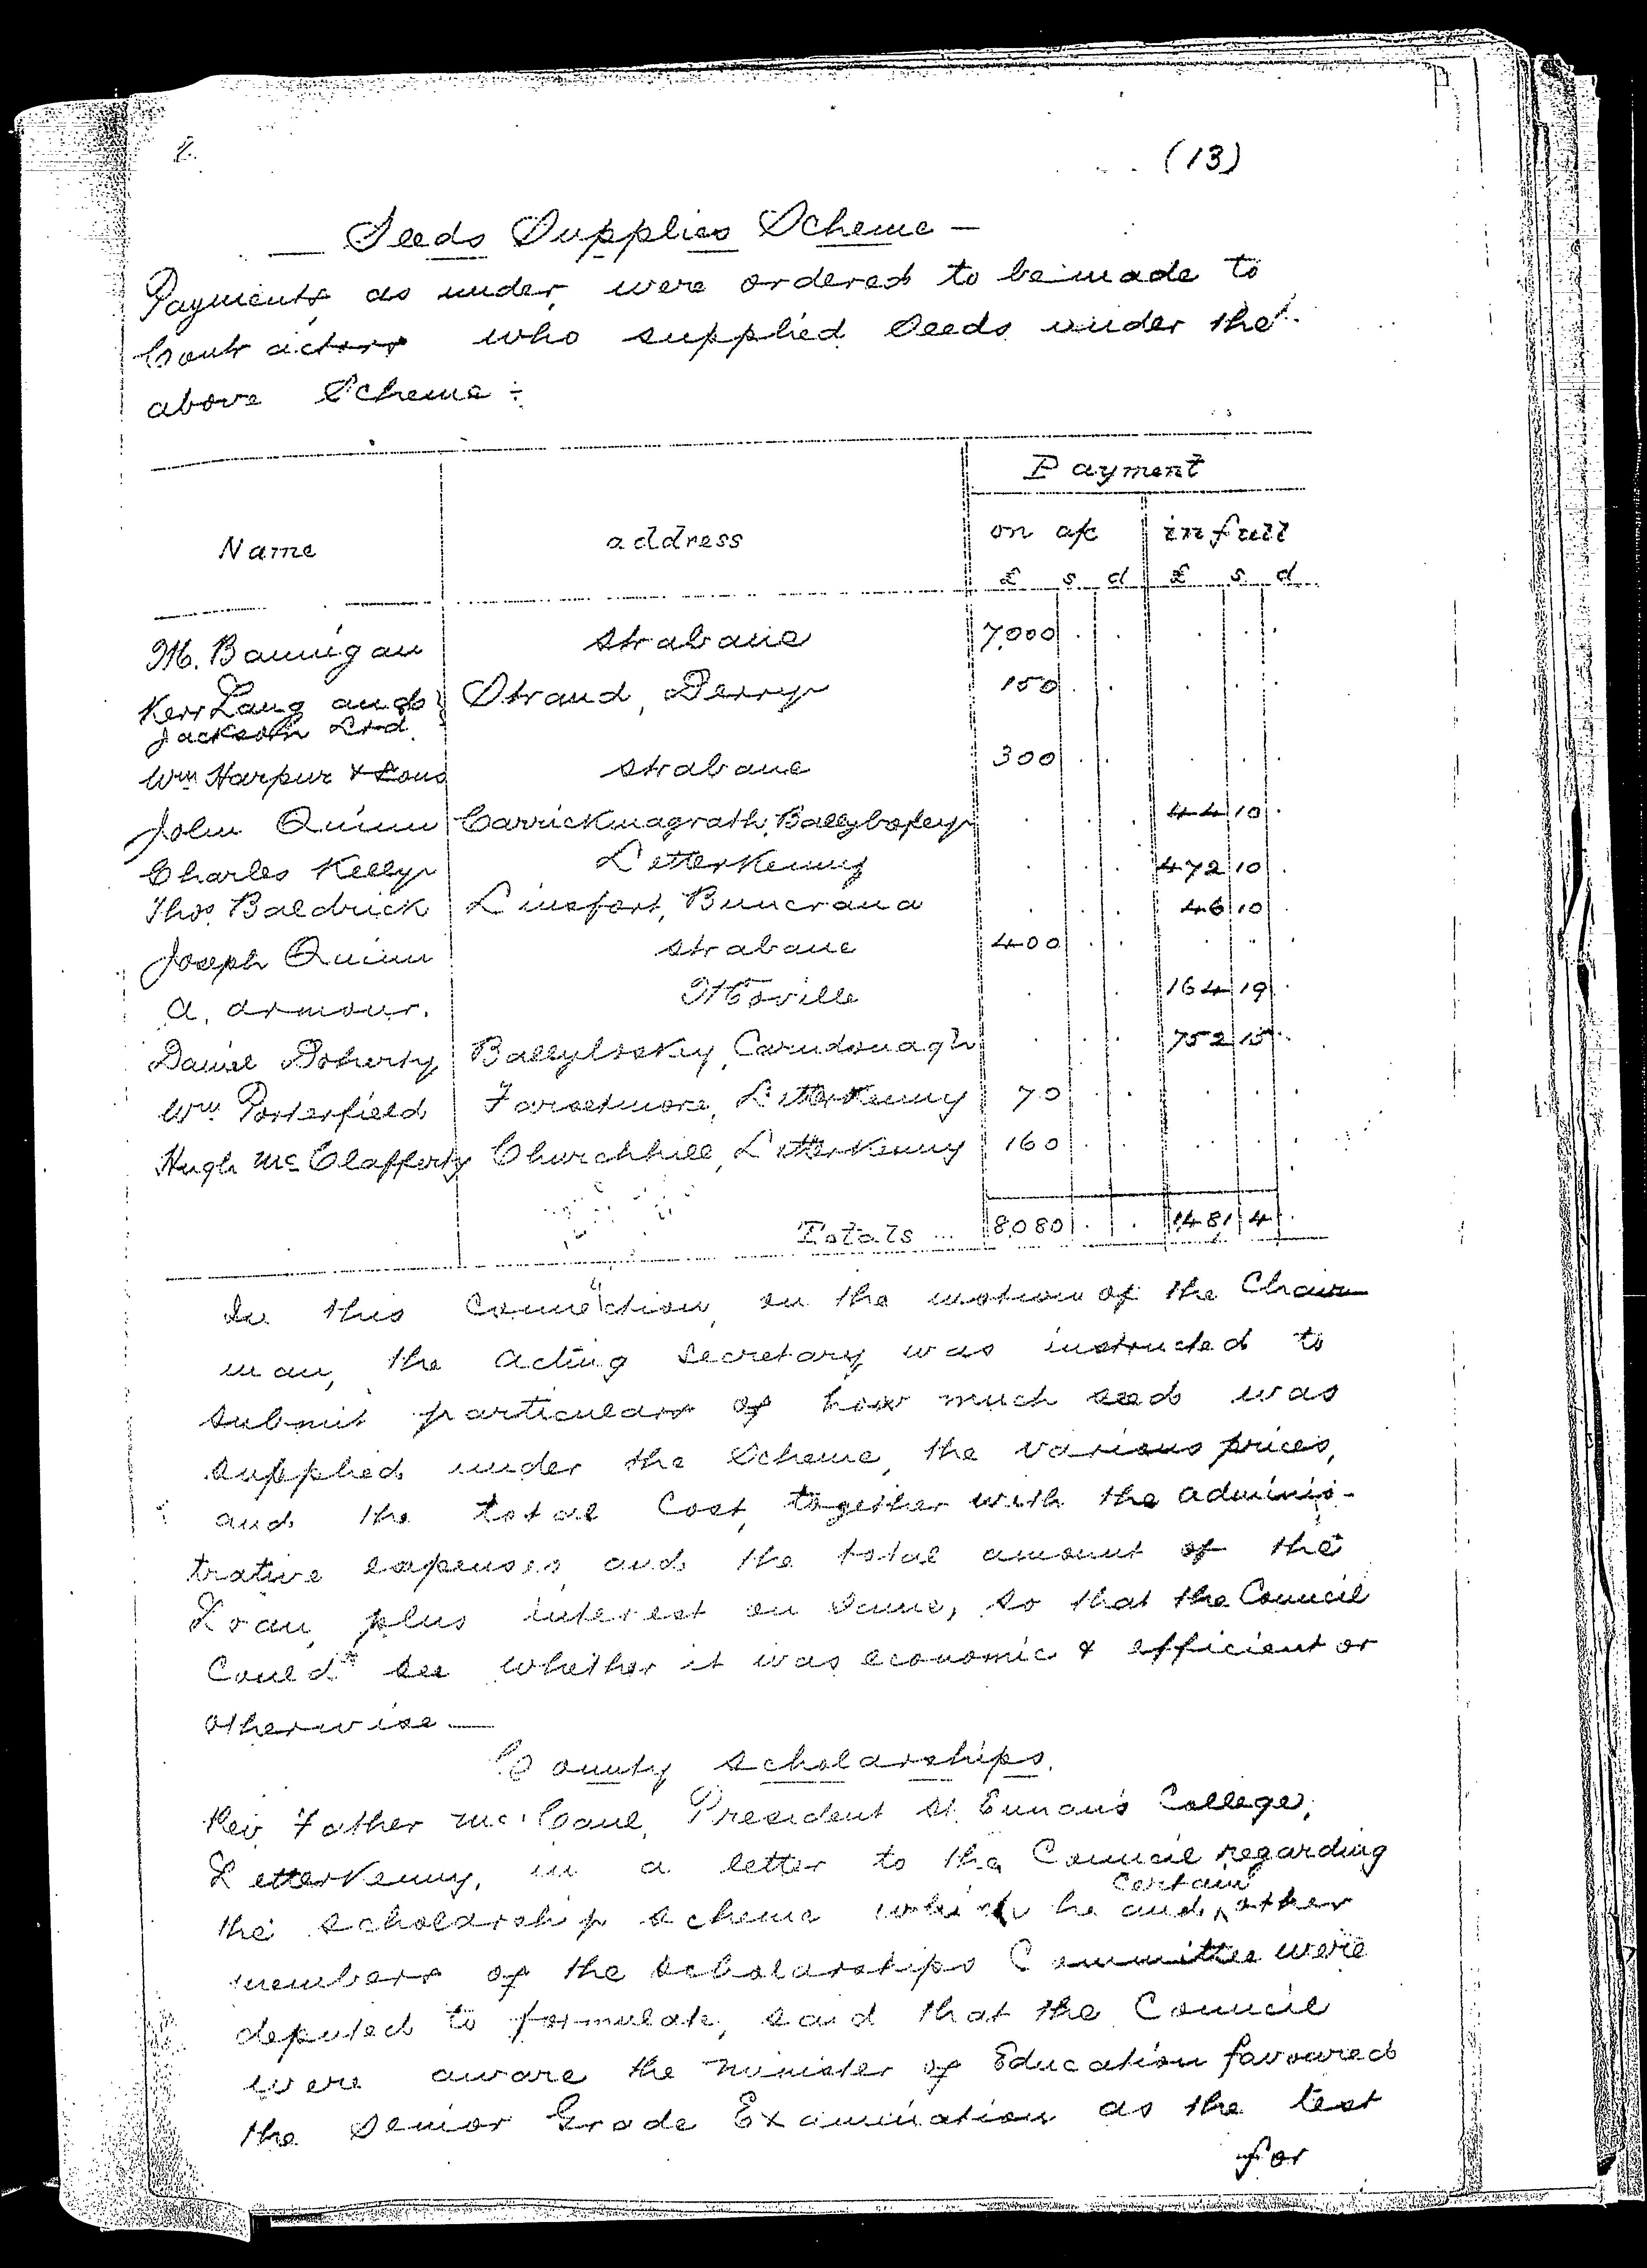 (13)
Seeds Supplies Scheme —
Payments as under were ordered to be made to
Contractors who supplied Seeds under the
above Scheme :-
Payment
Name address on a/c in full
£ s d £ s d
M. Bannigan Strabane 7,000 . . . . .
Kerr Lang and Strand, Derry 150 . . . . .
Jackson Ltd.
Wm Harpur & Sons Strabane 300 . . . . .
John Quinn Carrickmagrath, Ballybofey . . . 44 10 .
Charles Kelly Letterkenny . . . 472 10 .
Thos Baldrick Linsfort, Buncrana . . . 46 10 .
Joseph Quinn Strabane 400 . . . . .
A. Armour. Moville . . . 164 19 .
Daniel Doherty Ballylosky, Carndonagh . . . 752 15 .
Wm Porterfield Farsetmore, Letterkenny 70 . . . . .
Hugh McClafferty Churchhill, Letterkenny 160 . . . . .
Totals ... 8080 . . 1,481 4 .
In this connection, on the motion of the Chair-
man, the Acting Secretary was instructed to
submit particulars of how much seed was
supplied under the Scheme, the various prices,
and the total Cost, together with the adminis-
trative expenses and the total amount of the
Loan, plus interest on same, so that the Council
Could see whether it was economic & efficient or
otherwise —
County Scholarships.
Rev Father McCaul, President St. Eunan's College,
Letterkenny, in a letter to the Council regarding
certain
the scholarship scheme which he and ^ other
members of the Scholarships Committee were
deputed to formulate, said that the Council
were aware the Minister of Education favoured
the Senior Grade Examination as the test
for